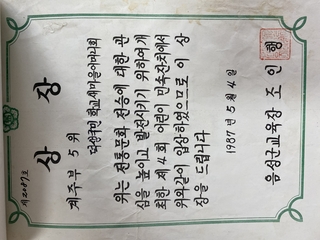 제2087호
상장
계주부 5위
학교새마을어머니회
위는 전통문화 전승에 대한 관
심을 높이고 발전시키기 위하여 개
최한 제4회 어린이 민속잔치에서
위와같이 입상하였으므로 이 상
장을 드립니다
1987년 5월 4일
음성군교육장 조인행